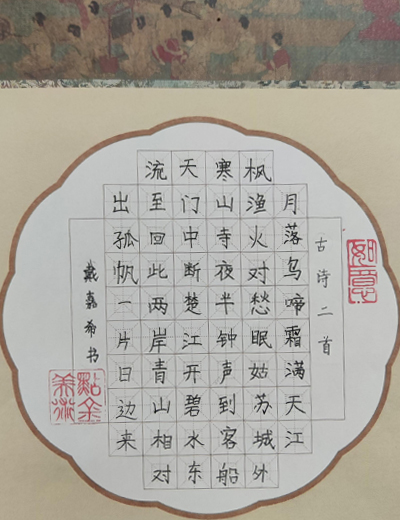 如意
古诗二首
月落乌啼霜满天江
枫渔火对愁眠姑苏城外
寒山寺夜半钟声到客船
天门中断楚江开碧水东
流至回此两岸青山相对
出孤帆一片日边来
戴嘉希书
點金
美術